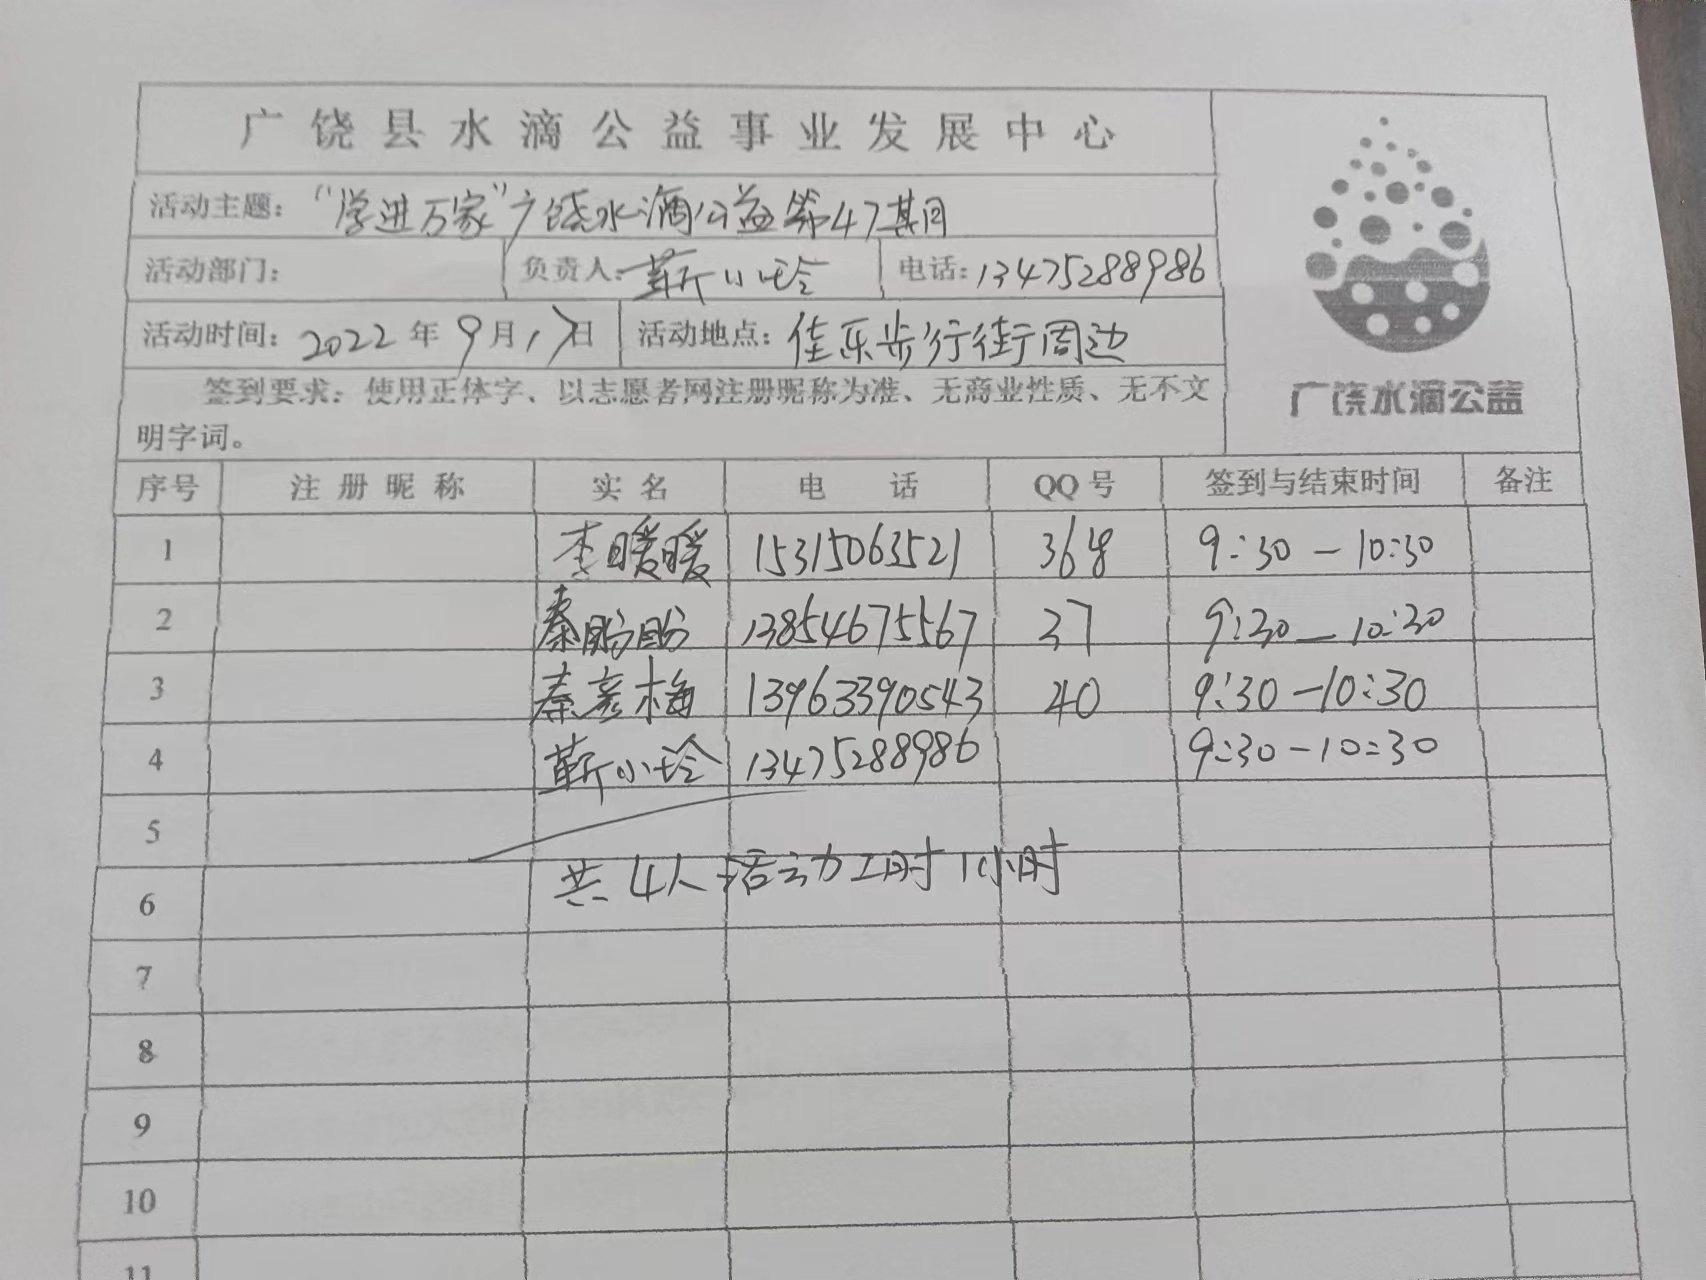 广饶县水滴公益事业发展中心
活动主题：“学进万家”广饶水滴公益第47期
活动部门： 负责人：靳小玲 电话：13475288986
活动时间：2022年9月17日 活动地点：佳乐步行街周边
签到要求：使用正体字、以志愿者网注册昵称为准、无商业性质、无不文
明字词。
广饶水滴公益
序号 注册昵称 实名 电话 QQ号 签到与结束时间 备注
1 李暖暖 15315063521 368 9:30-10:30
2 秦盼盼 13854675567 37 9:30-10:30
3 秦彦梅 13963390543 40 9:30-10:30
4 靳小玲 13475288986 9:30-10:30
5
6 共4人 活动工时1小时
7
8
9
10
11